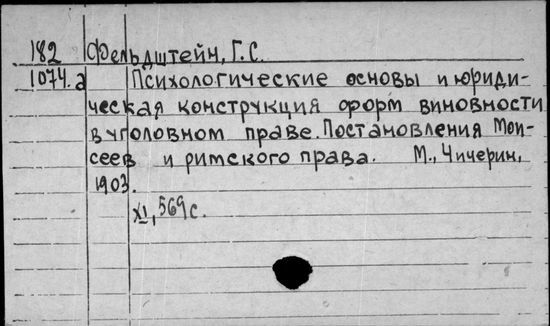 182 Фельдштейн, Г.С.
1074.а Психологические основы и юриди-
ческая конструкция форм виновности
в уголовном праве. Постановления Мои-
сеев и римского права. М., Чичерин,
1903.
XI, 569 с.